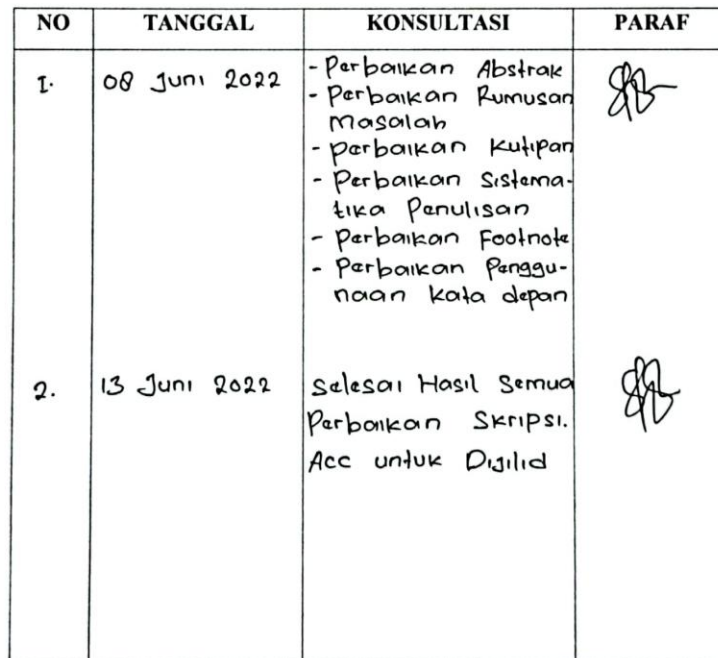 NO TANGGAL KONSULTASI PARAF
1. 08 Juni 2022 - Perbaikan Abstrak
- Perbaikan Rumusan
Masalah
- Perbaikan Kutipan
- Perbaikan Sistema-
tika Penulisan
- Perbaikan Footnote
- Perbaikan Penggu-
naan kata depan
2. 13 Juni 2022 Selesai Hasil Semua
Perbaikan Skripsi.
Acc untuk Dijilid